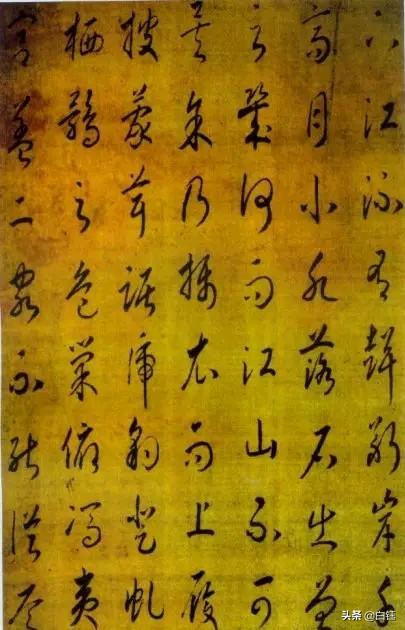 下江流有聲斷岸千
高月小水落石出曾
之幾何而江山不可
矣余乃攝衣而上履
披蒙茸踞虎豹登虬
栖鶻之危巢俯馮夷
宮蓋二客不能從焉
头条 @白钰